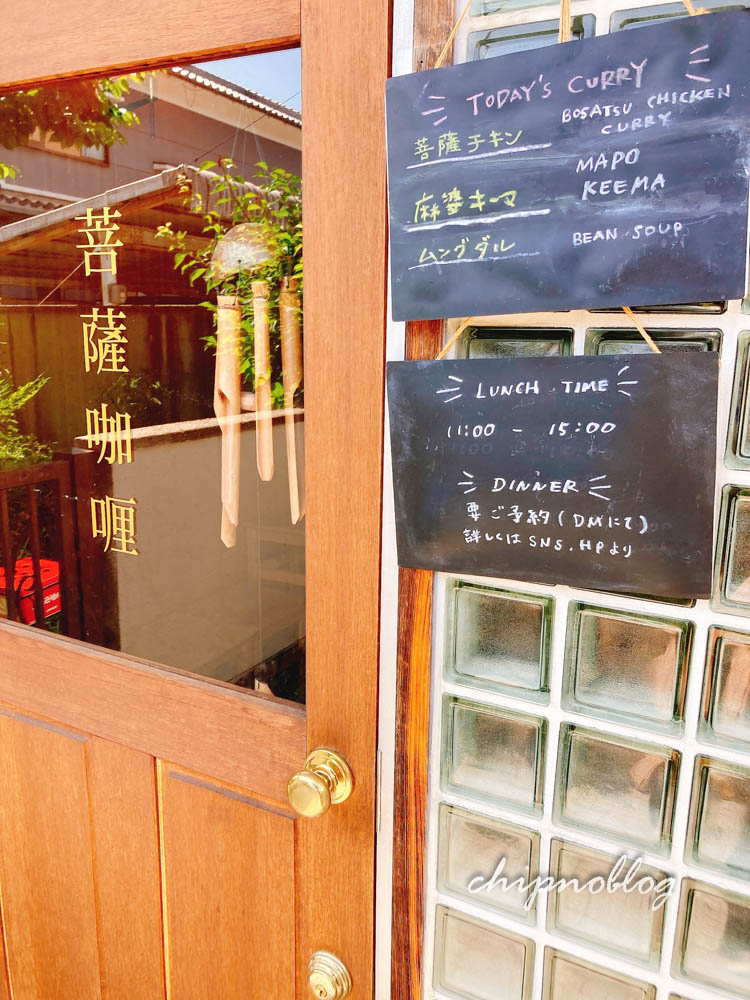 菩薩咖喱
TODAY'S CURRY
菩薩チキン
BOSATSU CHICKEN
CURRY
麻婆キーマ
MAPO
KEEMA
ムングダル
BEAN SOUP
LUNCH TIME
11:00 - 15:00
DINNER
要ご予約(DMにて)
詳しくはSNS.HPより
chipnoblog